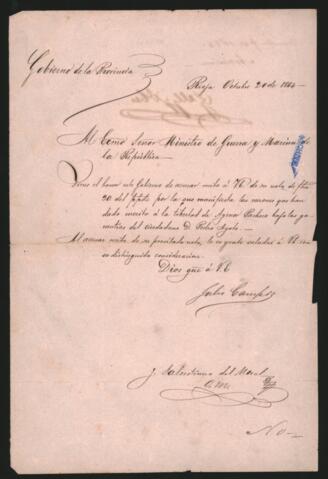 Gobierno de la Provincia
Rioja Octubre 20 de 1864
Al Exmo Señor Ministro de Guerra y Marina de
la República
Tiene el honor este Gobierno de acusar recibo á VE de su nota de fha
20 del ppto por la que manifiesta las razones que han
dado mérito á la libertad de Aguar Pacheco bajo las ga-
rantias del ciudadano D. Pedro
Al acusar recibo de su precitada nota, le es grato saludar á VE con
su distinguida consideracion.
Dios gue á V.E
Julio Campos
J. Salustiano del Moral
No